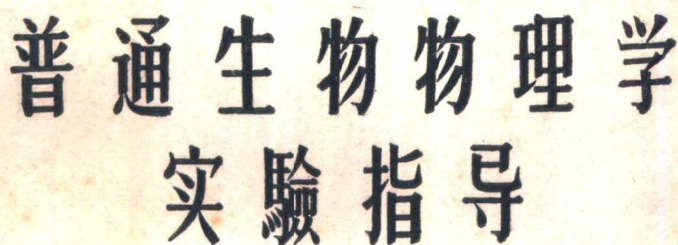 普通生物物理学
实驗指导